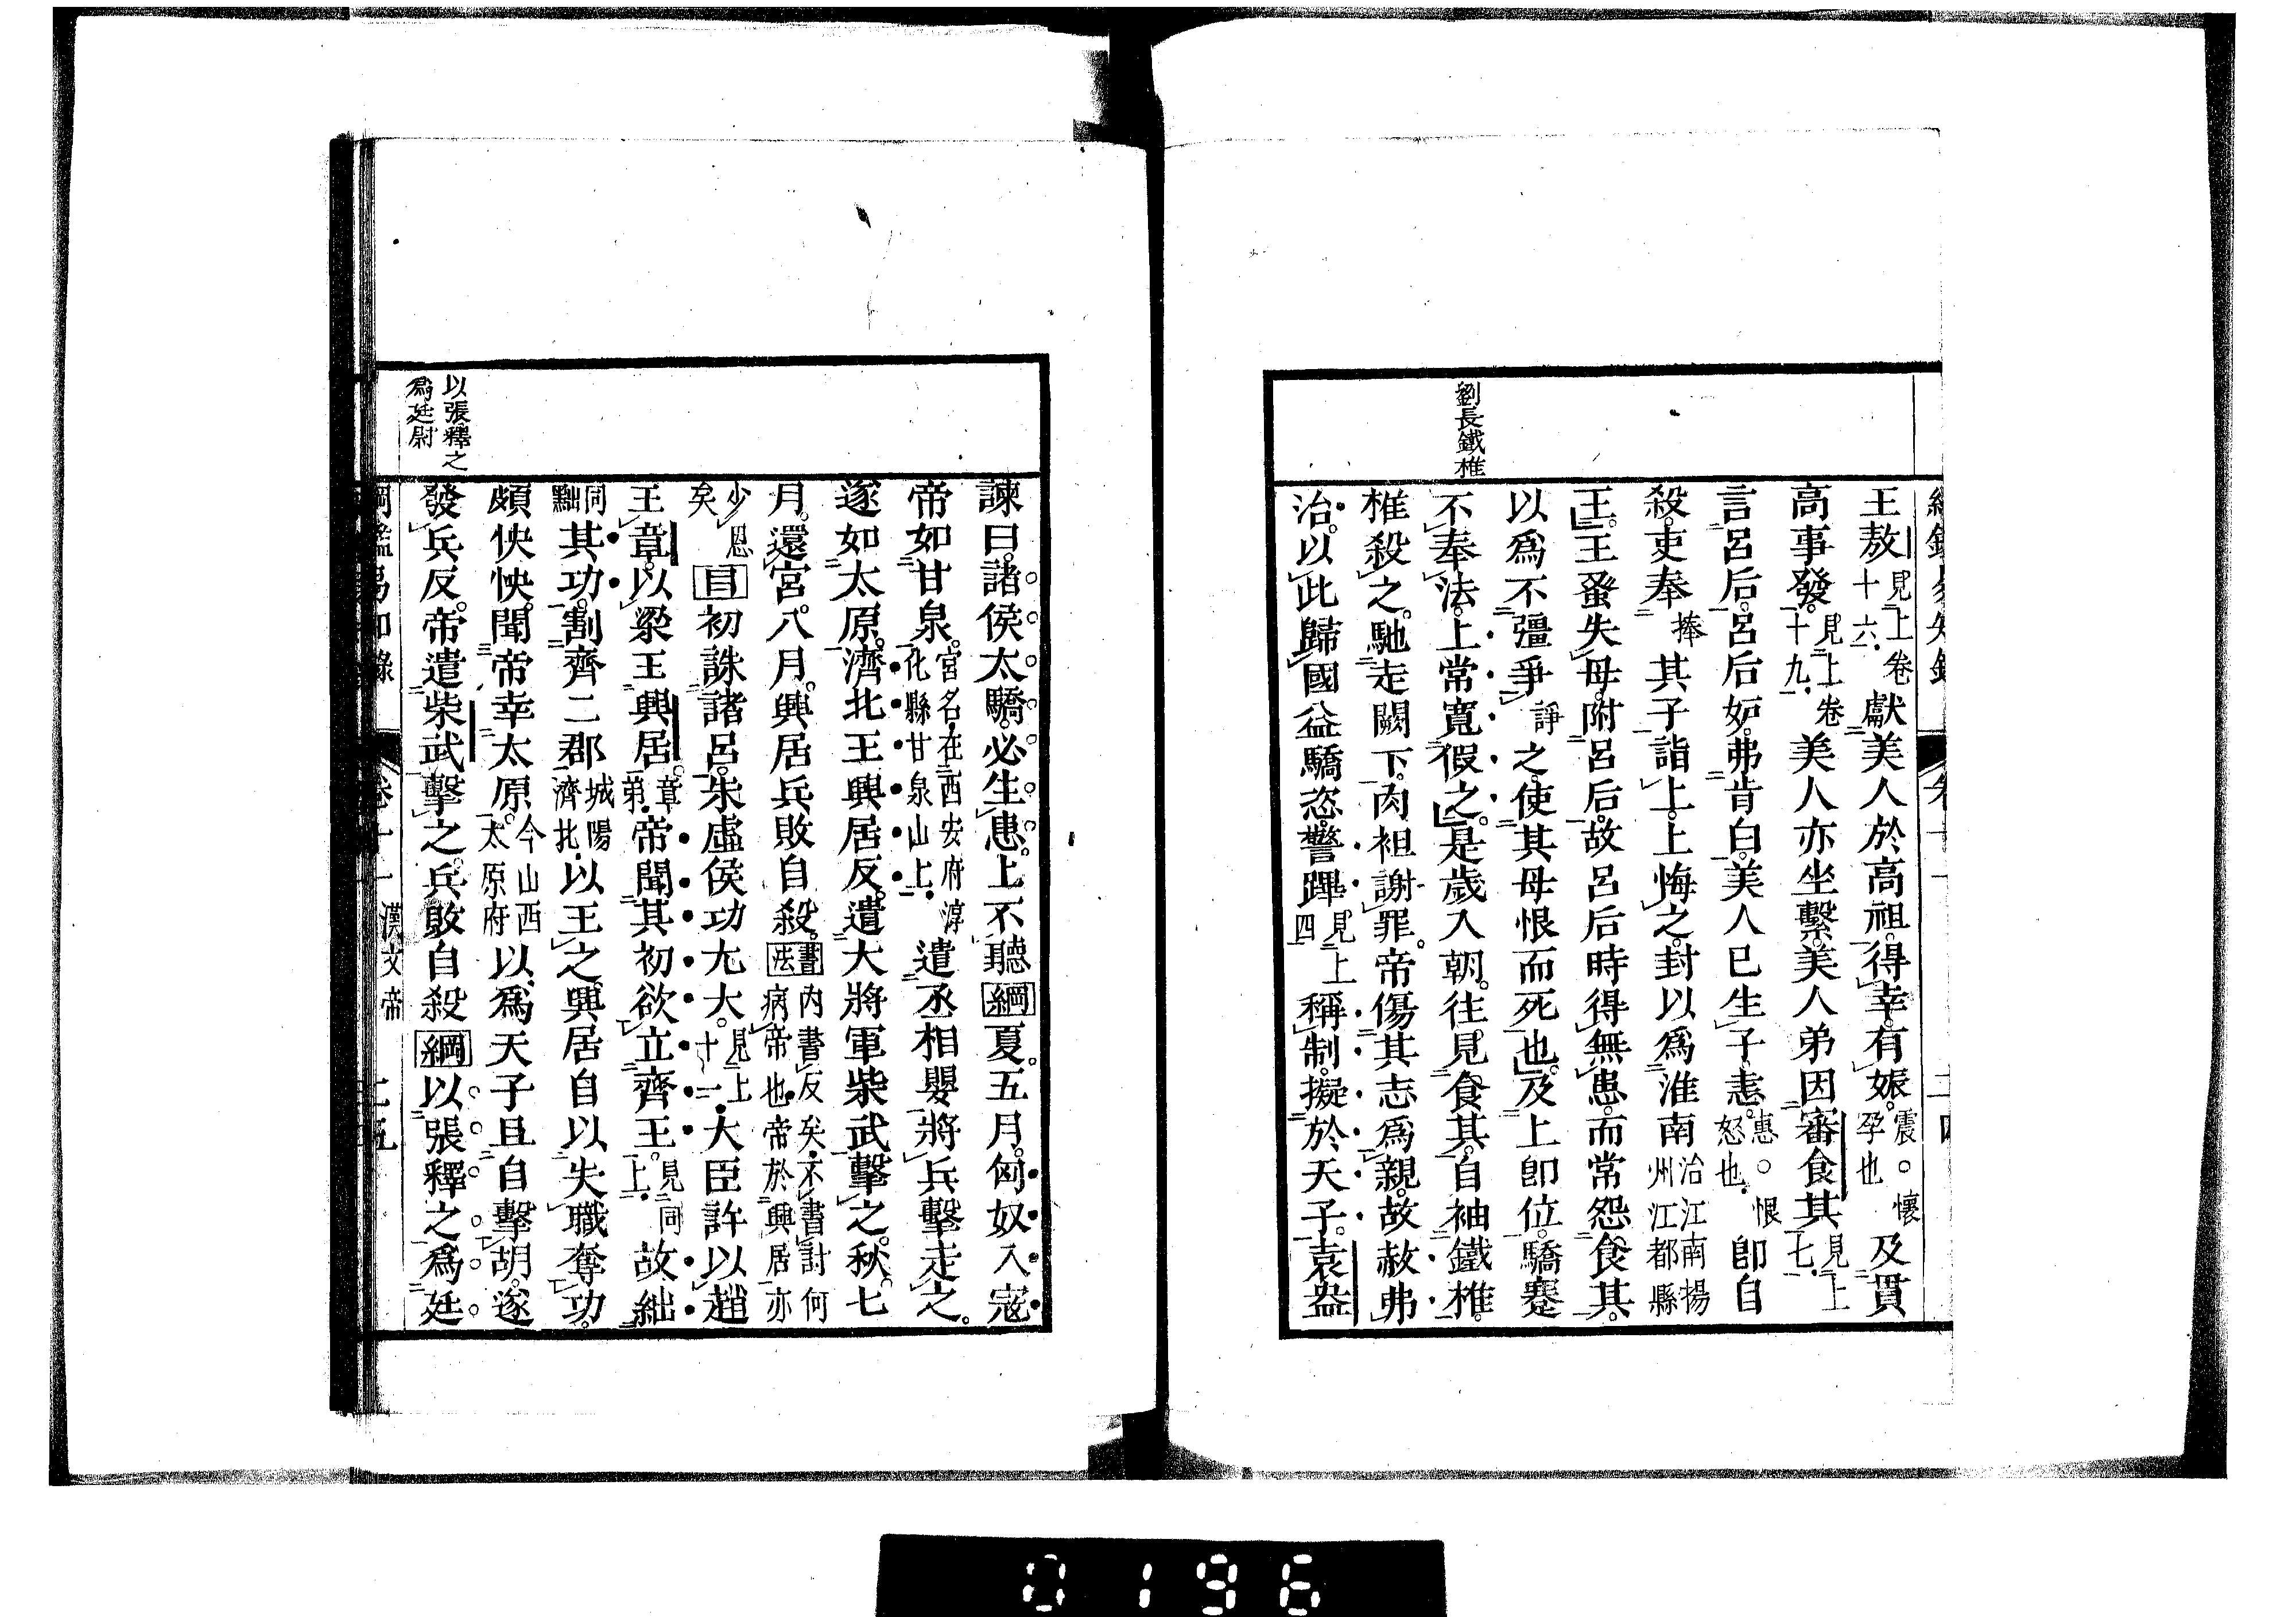 劉長鐵椎
王敖見上卷十六獻美人於高祖。得幸。有娠。震○懷孕也及貫
高事發。見上卷十九美人亦坐繫。美人弟因審食其見上七
言呂后。呂后妬。弗肯白。美人已生子。恚。惠○恨怒也卽自
殺。吏奉捧其子詣上。上悔之。封以爲淮南治江南揚州江都縣
王。王蚤失母。附呂后。故呂后時得無患。而常怨食其。
以爲不彊爭諍之。使其母恨而死也。及上卽位。驕蹇
不奉法。上常寬假之。是歲入朝。往見食其。自袖鐵椎。
椎殺之。馳走闕下。肉袒謝罪。帝傷其志爲親。故赦弗
治。以此歸國益驕恣。警蹕見上四稱制。擬於天子。袁盎
以張釋之
爲廷尉
諫曰。諸侯太驕。必生患。上不聽綱夏。五月。匈奴入寇
帝如甘泉。宮名在西安府淳化縣甘泉山上遣丞相嬰將兵擊走之。
遂如太原。濟北王興居反。遣大將軍柴武擊之。秋。七
月。還宮。八月。興居兵敗自殺。書法內書反矣不書討何病帝也帝於興居亦
少恩矣目初誅諸呂。朱虛侯功尤大。見上十二大臣許以趙
王章。以梁王興居。章弟帝聞其初欲立齊王。見上同故絀
同黜其功。割齊二郡城陽濟北以王之。興居自以失職奪功。
頗怏怏。聞帝幸太原。今山西太原府以爲天子且自擊胡。遂
發兵反。帝遣柴武擊之。兵敗自殺綱以張釋之爲廷
漢文帝
0196